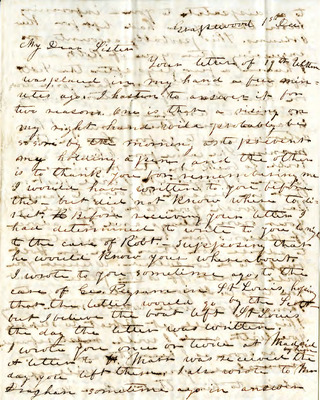 My Dear Sister
Your letter of 17th
was placed in my hand a few min-
utes ago. I hasten to answer it for
two reasons. One is that a rising on
my right hand will probably be
so sore by the morning as to prevent
my holding a pen and the other
is to thank you for remembering me
I would have written to you before
this but did not know where to di-
rect. Before receiving your letter I
had determined to write to you
to the care of Robt. supposing that
he would know your whereabouts
I wrote to you sometime ago to the
care of Geo. in St Louis, hoping
that the letter would go by the
but I believe the boat left St Louis
the day the letter was written;
I wrote you once or twice at
a letter to was received the
day you left there. I also wrote to Mrs
sometime ago in answer